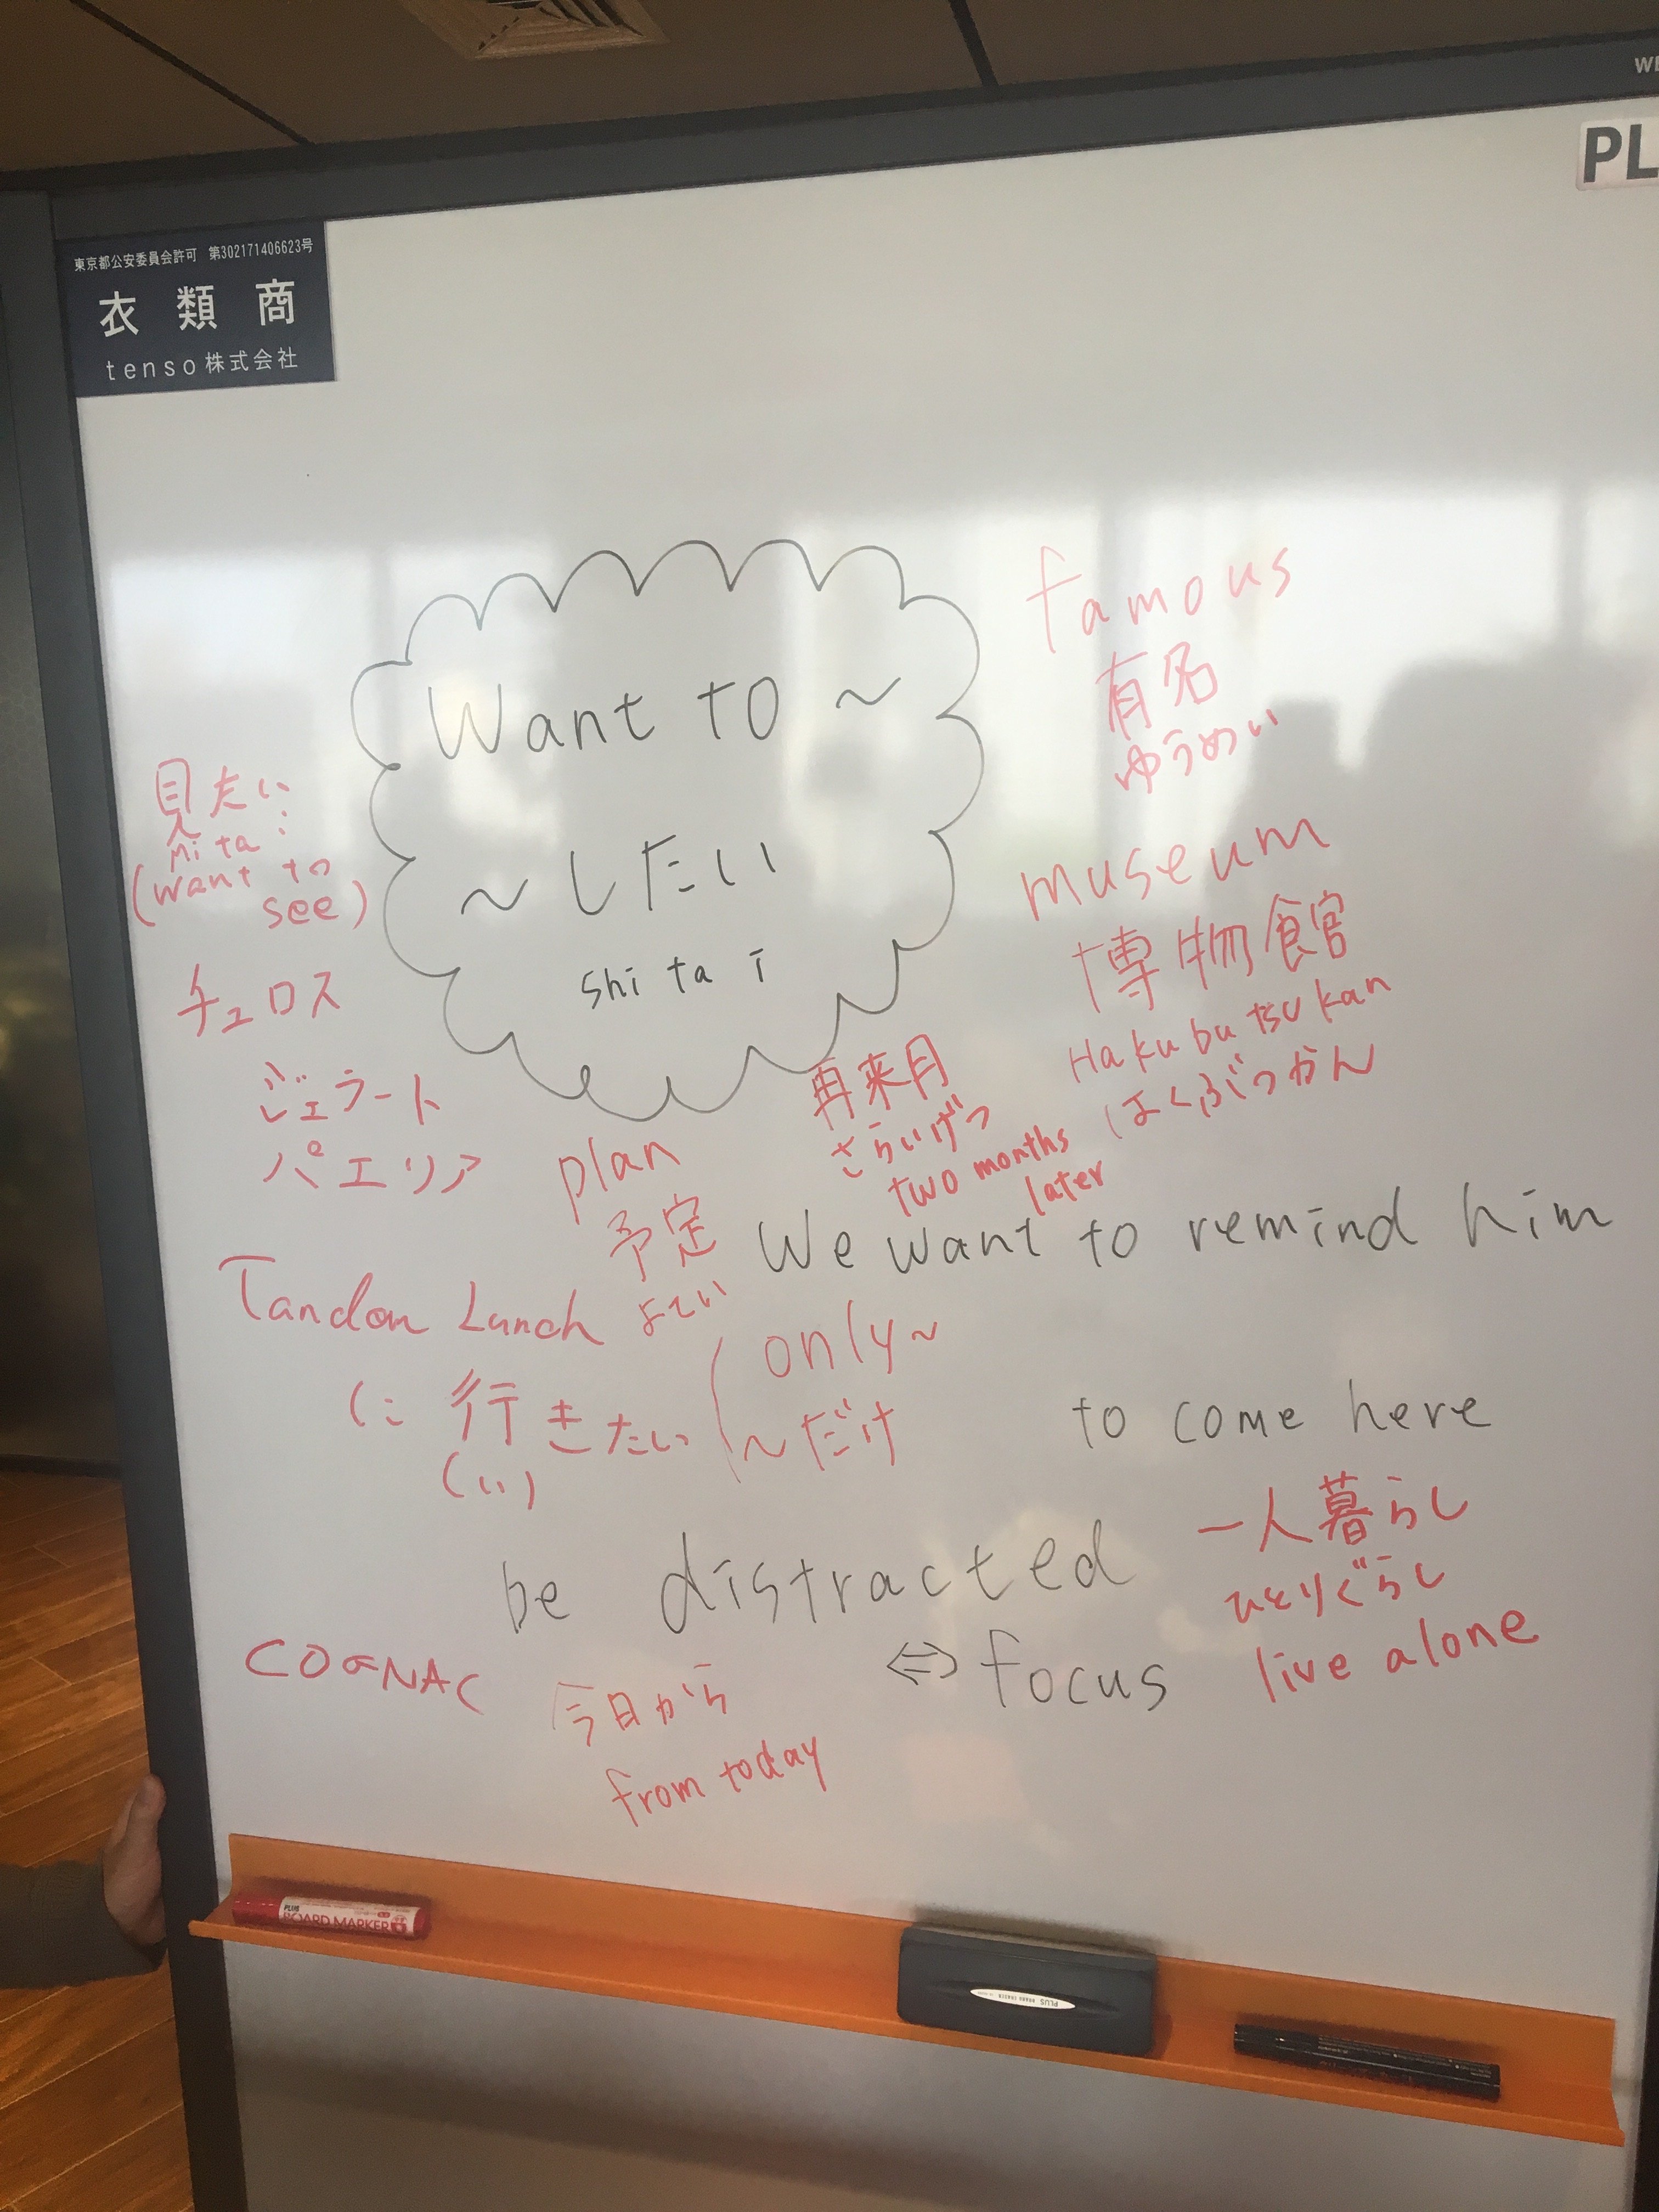 WE
PL
東京都公安委員会許可 第302171406623号
衣類商
tenso株式会社
Want to ~
~したい
shi ta i
famous
有名
ゆうめい
見たい
mi ta i
(want to
see)
museum
博物館
Hakubutsukan
はくぶつかん
チュロス
ジェラート
パエリア
再来月
さらいげつ
two months
later
plan
予定
よてい
We want to remind him
to come here
Tandon Lunch
に行きたい
(い)
only~
~だけ
be distracted
⇔ focus
一人暮らし
ひとりぐらし
live alone
COGNAC
今日から
from today
PLUS
BOARD MARKER
PLUS